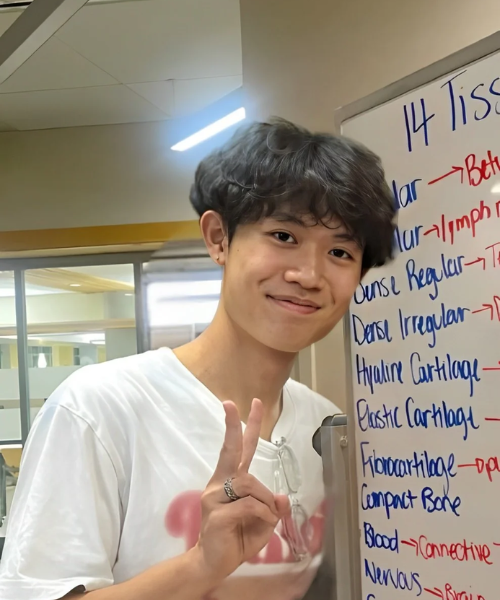 14 Tiss
lar → Betw
lar → lymph n
Dense Regular →
Dense Irregular →
Hyaline Cartilage
Elastic Cartilage
Fibrocartilage →
Compact Bone
Blood → Connective
Nervous → Brain